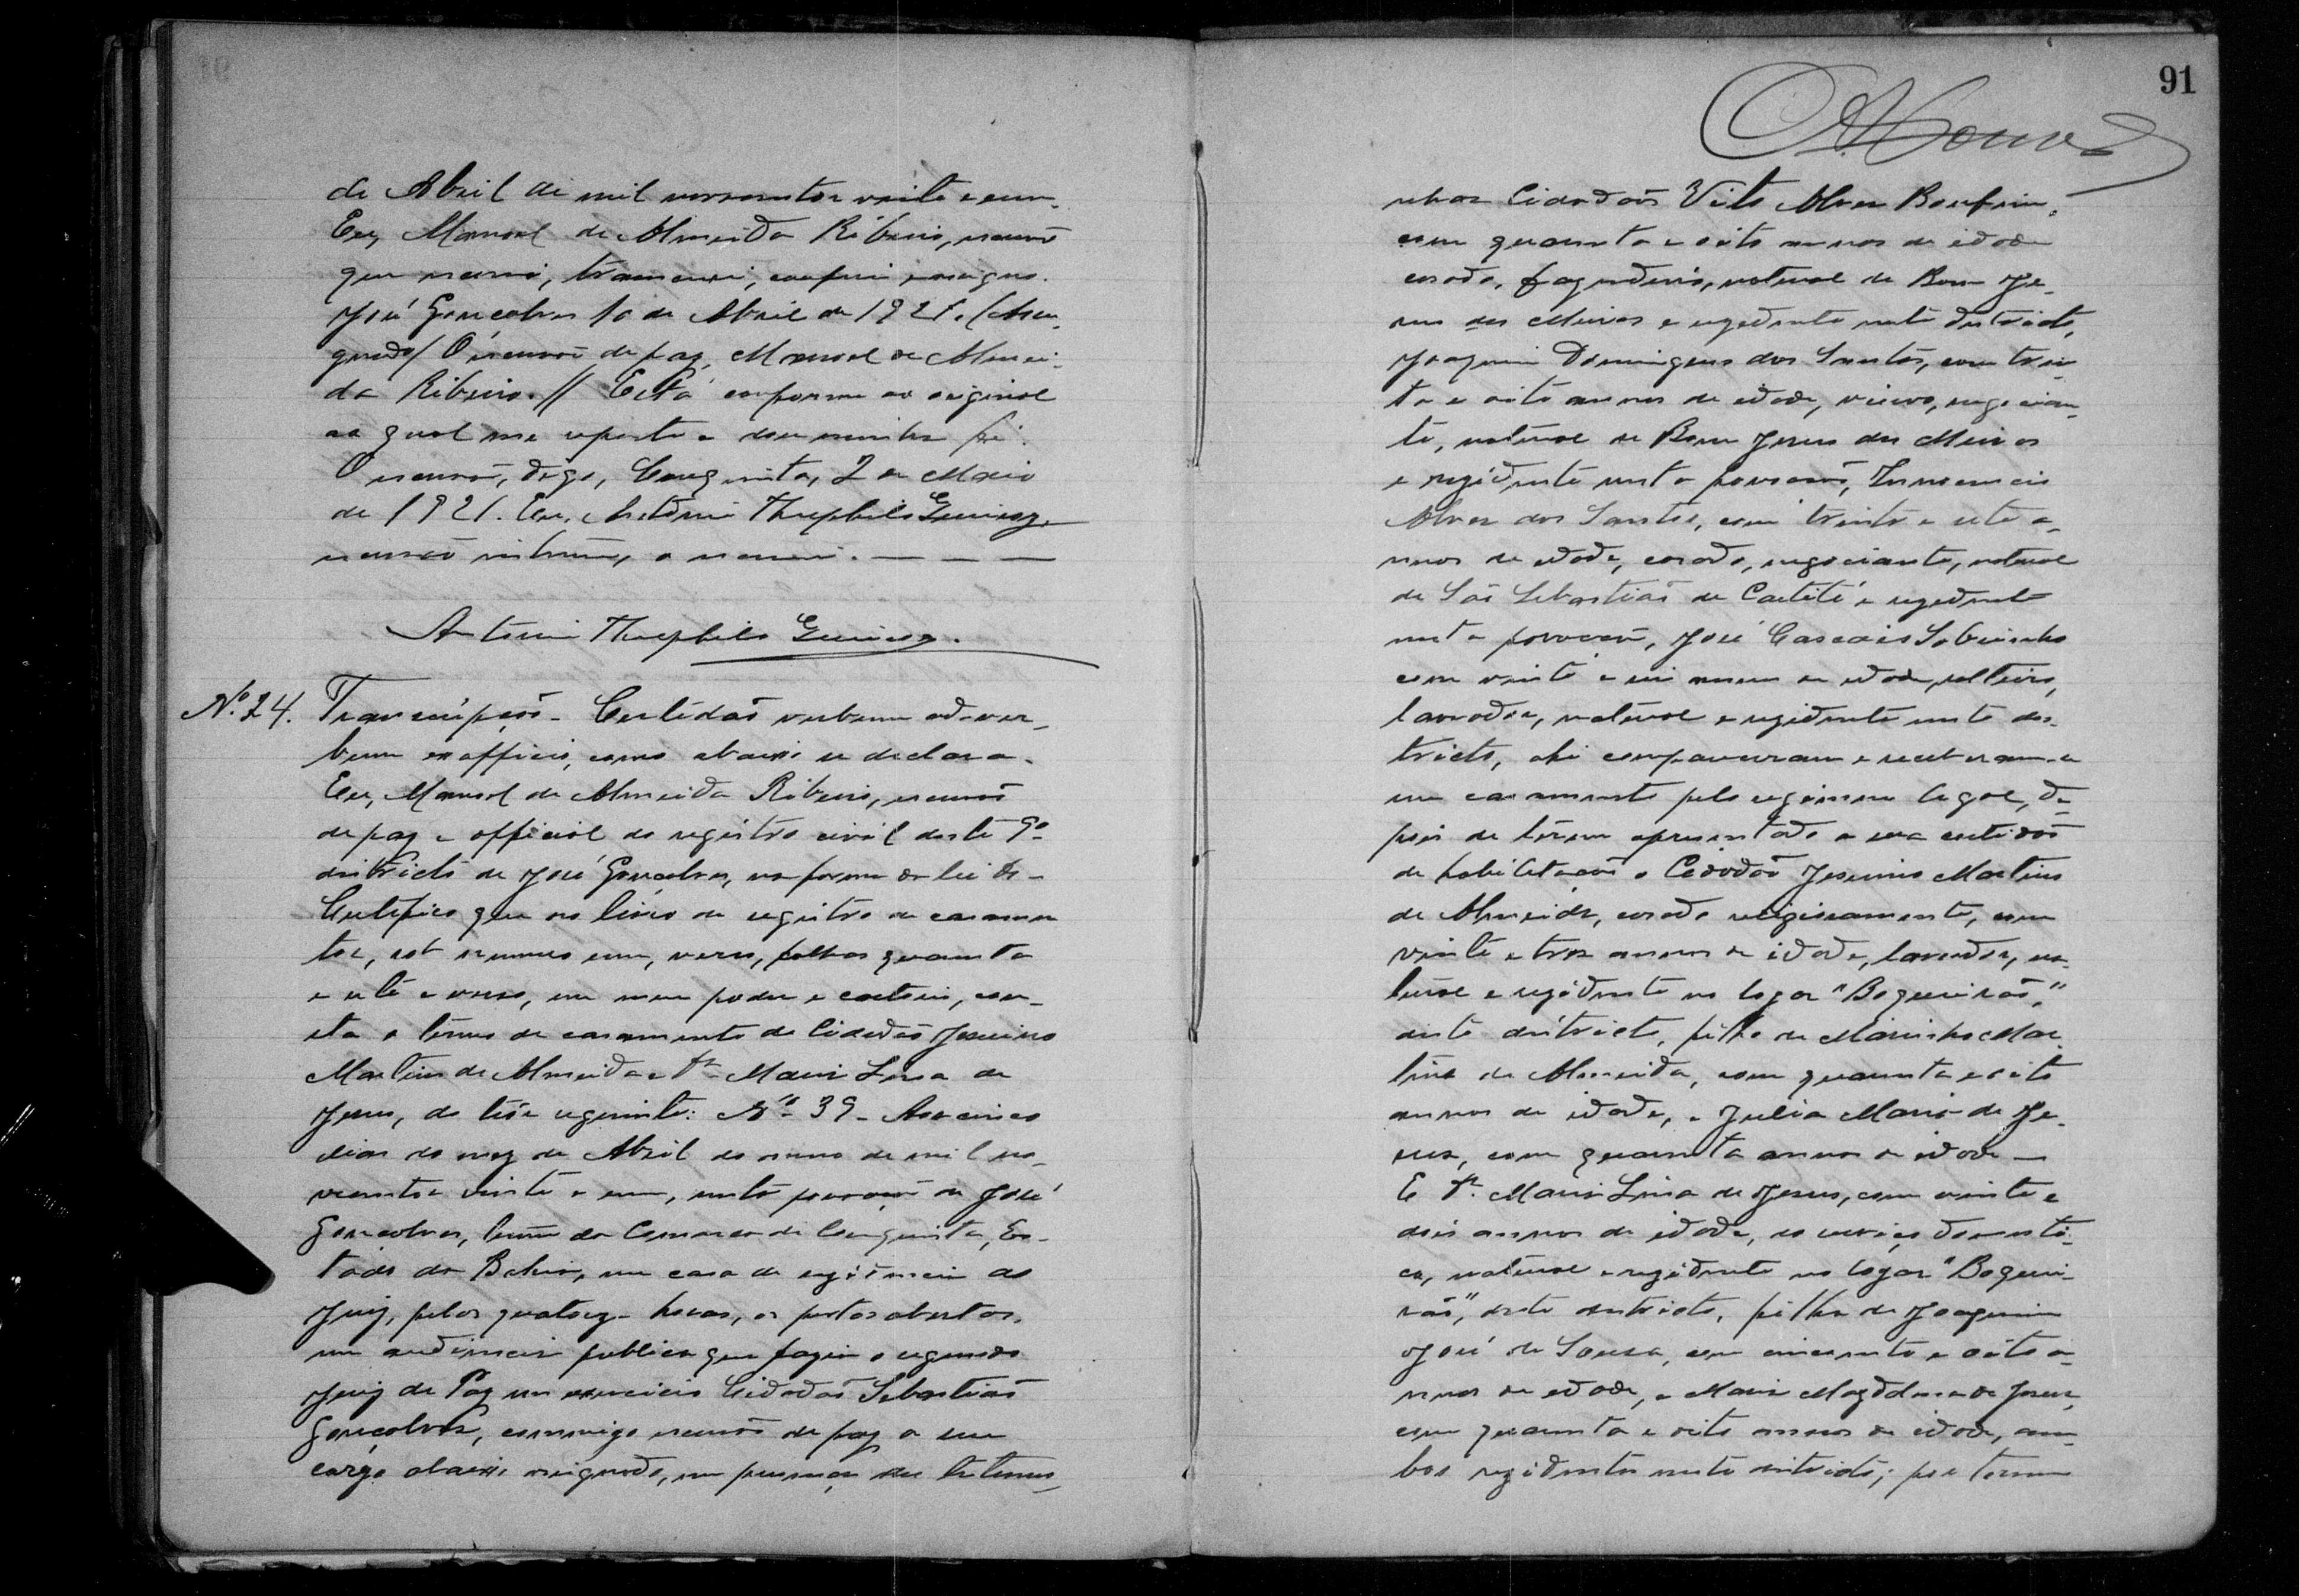 de Abril de mil novecentos vinte e um.
Eu, Manoel de Almeida Ribeiro, escrivão
que escrevi, transcrevi, conferi e assigno.
José Gonçalves 10 de Abril de 1921. (Assi-
gnado) O escrivão de paz, Manoel de Almei-
da Ribeiro.// Está conforme ao original
ao qual me reporto e dou minha fé.
O escrivão, digo, Conquista, 2 de Maio
de 1921. Eu, Antonio Theophilo
escrivão interino, o escrevi. — — —
Antonio Theophilo
Nº 24. Transcripção - Certidão verbum ad ver-
bum ex officio, como abaixo se declara.
Eu, Manoel de Almeida Ribeiro, escrivão
de paz e official do registro civil deste 9º
districto de José Gonçalves, na forma da lei &-
Certifico que no livro de registro de casamen
tos, sob numero um, verso, folhas quarenta
e sete e verso, em meu poder e cartorio, cons-
ta o termo de casamento do Cidadão Jesuino
Martins de Almeida e Dª Maria Lina de
Jesus, do teôr seguinte: Nº 39 - Aos cinco
dias do mez de Abril do anno de mil no-
vecentos vinte e um, nesta povoação de José
Gonçalves, termo da Comarca de Conquista, Es-
tado da Bahia, em casa de rezidencia do
Juiz, pelas quatorze horas, as portas abertas,
em audiencia publica que fazia o segundo
Juiz de Paz em exercicio Cidadão Sebastião
Gonçalves, commigo escrivão de paz a seu
cargo abaixo assignado, em presença das testemu-
91
nhas Cidadãos Vito Alves Bomfim,
com quarenta e oito annos de idade
casado, fazendeiro, natural de Bom Je-
sus dos Meiras e rezidente neste districto,
Joaquim Domingues dos Santos, com trin-
ta e oito annos de idade, viuvo, negocian-
te, natural de Bom Jesus dos Meiras
e rezidente nesta povoação, Innocencio
Alves dos Santos, com trinta e sete a-
nnos de idade, casado, negociante, natural
de São Sebastião de Caetité e rezidente
nesta povoação, José Cascais Sobrinho
com vinte e seis annos de idade, solteiro,
lavrador, natural e rezidente neste dis-
tricto, ahi compareceram e receberam-se
em casamento pelo regimen legal, de-
pois de terem apresentado a sua certidão
de habilitação o Cidadão Jesuino Martins
de Almeida, casado religiosamente, com
vinte e tres annos de idade, lavrador, na-
tural e rezidente no logar "Boqueirão,"
deste districto, filho de Marinho Mar-
tins de Almeida, com quarenta e oito
annos de idade, e Julia Maria de Je-
sus, com quarenta annos de idade —
E Dª. Maria Lina de Jesus, com vinte e
dois annos de idade, do serviço domesti-
co, natural e rezidente no logar "Boquei-
rão", deste districto, filha de Joaquim
José de Sousa, com cincoenta e oito a-
nnos de idade, e Maria Magdalena de Jesus,
com quarenta e oito annos de idade, am-
bos rezidentes neste districto; por terem